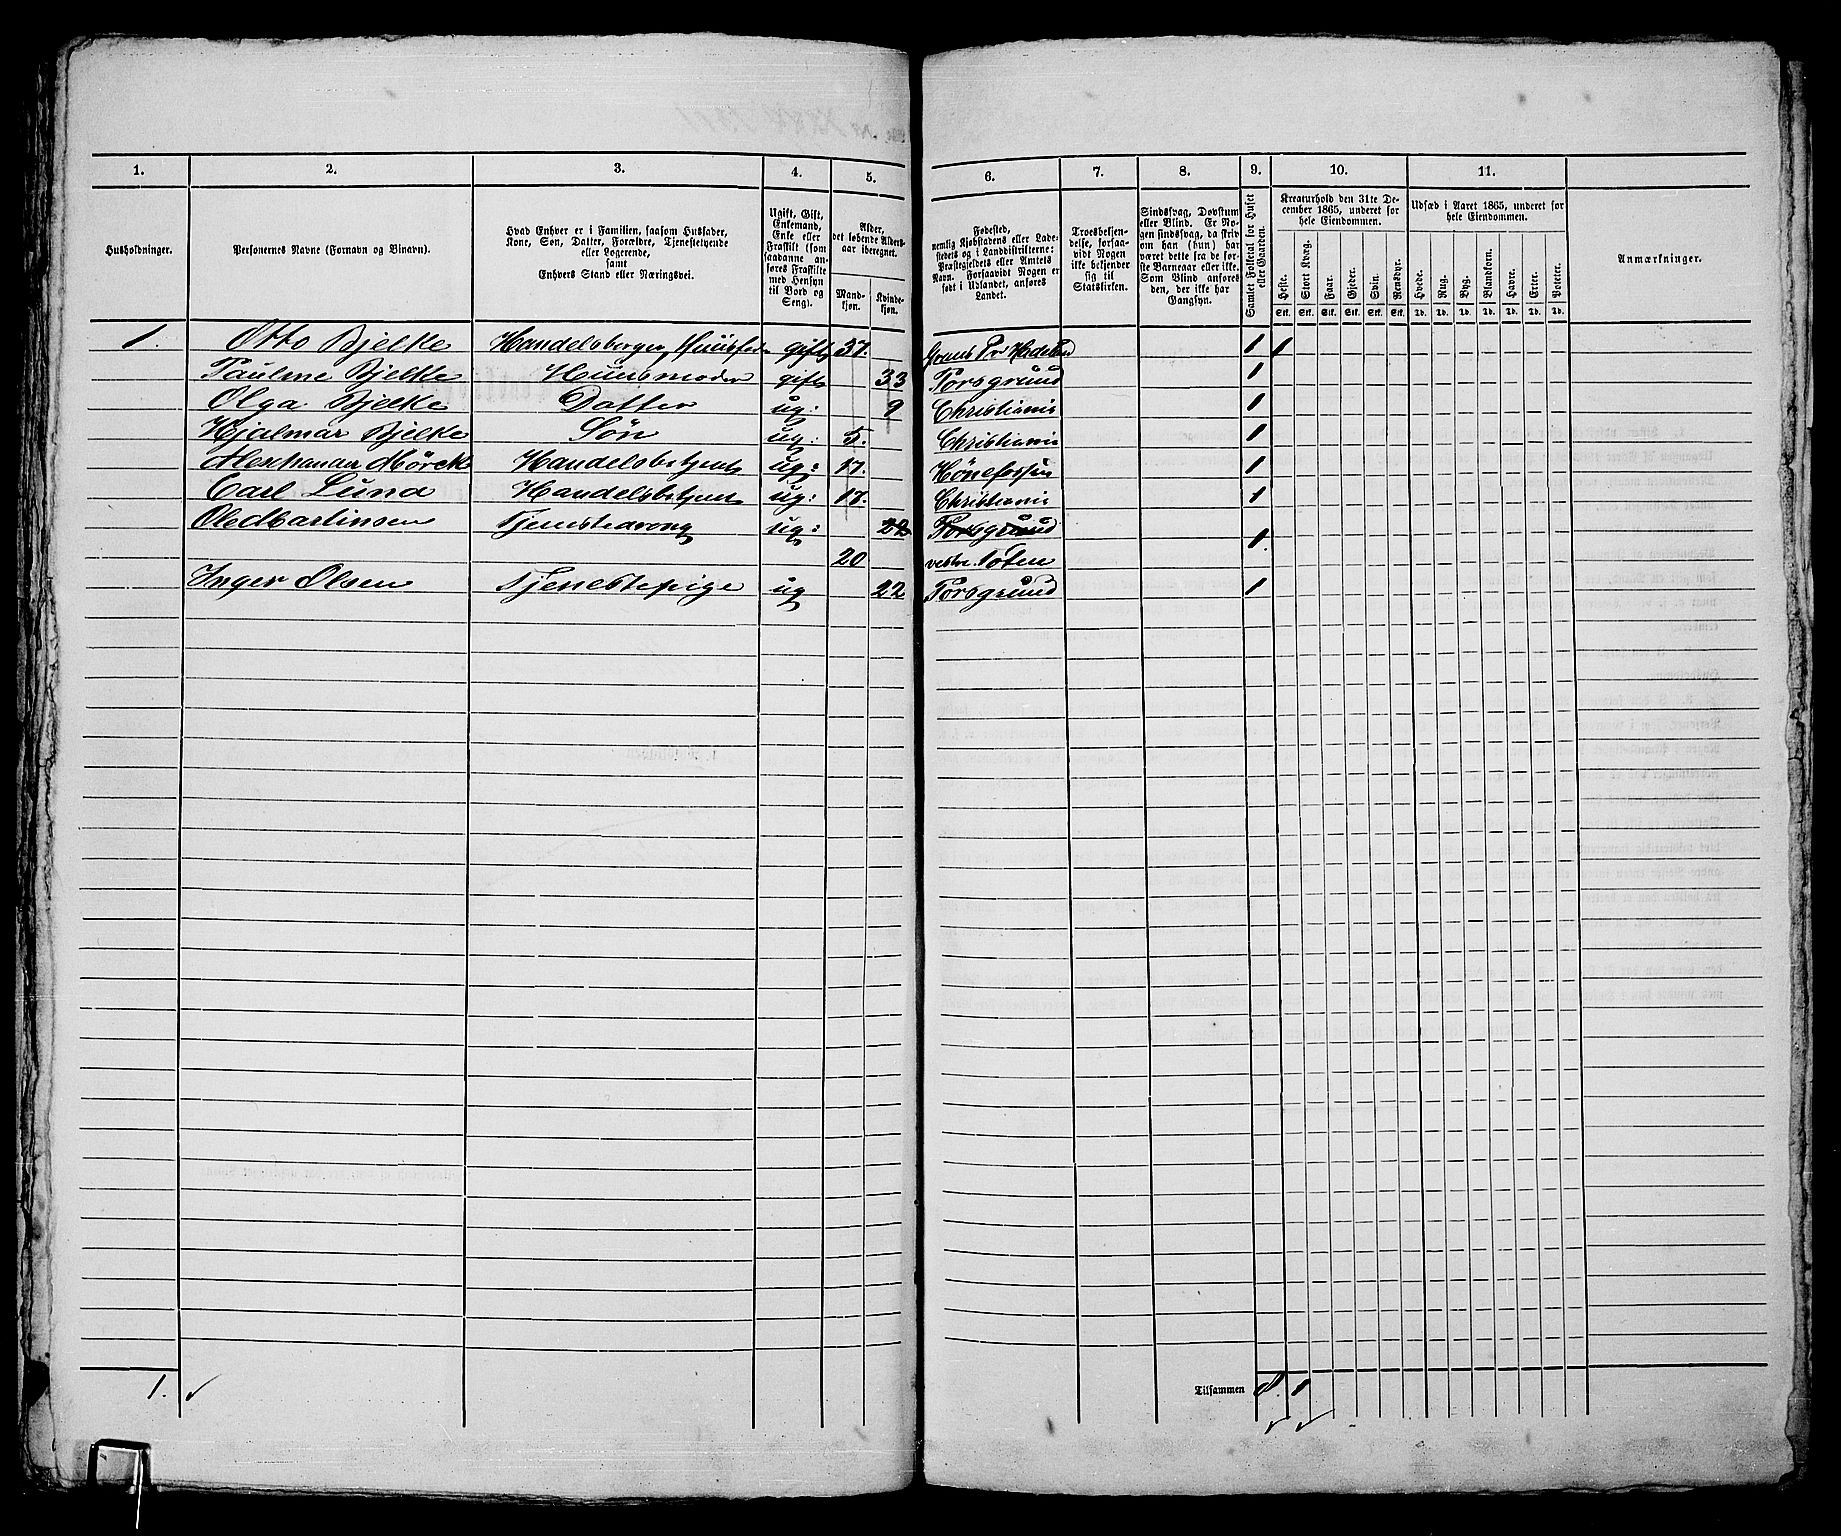 1. 2. 3. 4. 5. 6. 7. 8. 9. 10. 11.
Husholdninger.
Personernes Navne (Fornavn og Binavn).
Hvad Enhver er i Familien, saasom Husfader,
Kone, Søn, Datter, Forældre, Tjenestetyende
eller Logerende,
samt
Enhvers Stand eller Næringsvei.
Ugift, Gift,
Enkemand,
Enke eller
Fraskilt (som
saadanne an-
føres Fraskilte
med Hensyn
til Bord og
Seng).
Alder,
det løbende Alders-
aar iberegnet.
Mand-
kjøn.
Kvinde-
kjøn.
Fødested,
nemlig Kjøbstadens eller Lade-
stedets og i Landdistrikterne:
Præstegjeldets eller Amtets
Navn. Forsaavidt Nogen er
født i Udlandet, anføres
Landet.
Troesbekjen-
delse, forsaa-
vidt Nogen
ikke bekjender
sig til
Statskirken.
Sindssvag, Døvstum
eller Blind. Er No-
gen sindssvag, da skriv
om han (hun) har
været dette fra de før-
ste Barneaar eller ikke.
Som Blind anføres
den, der ikke har
Gangsyn.
Samlet Folketal for Huset
eller Gaarden.
Kreaturhold den 31te De-
cember 1865, underet for
hele Eiendommen.
Heste. Stort Kvæg. Faar. Gjeder. Svin. Rensdyr.
Stk. Stk. Stk. Stk. Stk. Stk.
Udsæd i Aaret 1865, underet for
hele Eiendommen.
Hvede. Rug. Byg. Blandkorn. Havre. Erter. Poteter.
Td. Td. Td. Td. Td. Td. Td.
Anmærkninger.
1. Otto Bjelke Handelsborger, Huusfader gift 37. Grans Pr Hadeland 1 1
Pauline Bjelke Huusmoder gift 33 Porsgrund 1
Olga Bjelke Datter ug: 9 Christiania 1
Hjalmar Bjelke Søn ug: 5. Christiania 1
Alexhander Mörck Handelsbetjent ug: 17. Hönefossen 1
Carl Lund Handelsbetjent ug: 17. Christiania 1
Ole Martinsen Tjenestedreng ug: 22 Porsgrund 1.
20 vestre Toten
Inger Olsen Tjenestepige ug 22 Porsgrund 1
1. Tilsammen 8. 1